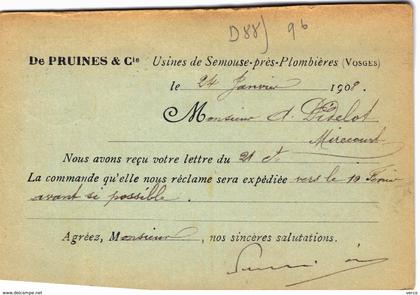 D88) 96
De PRUINES & Cie Usines de Semouse-près-Plombières (VOSGES)
le 24 Janvier 1908.
Monsieur A. Didelot
Mirecourt
Nous avons reçu votre lettre du 21 Ct.
La commande qu'elle nous réclame sera expédiée vers le 10 Février
avant si possible.
Agréez, Monsieur, nos sincères salutations.